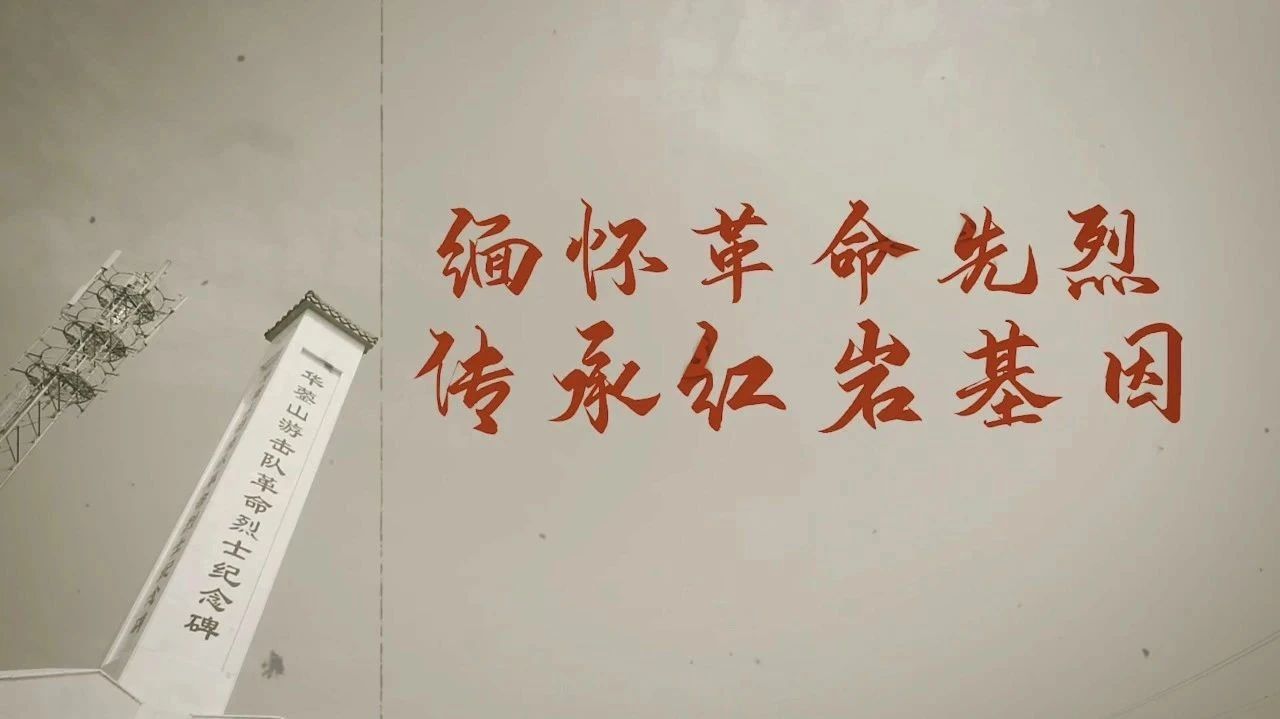 缅怀革命先烈
传承红岩基因
华蓥山游击队革命烈士纪念碑